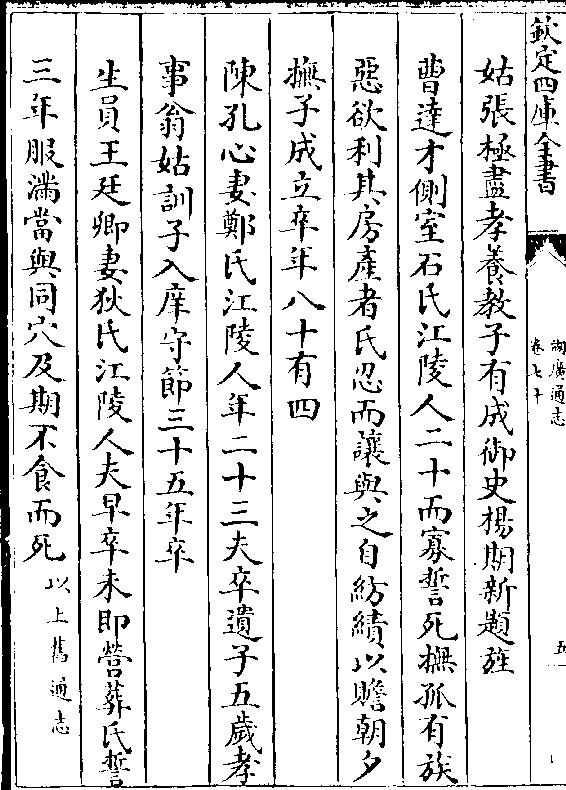 欽定四庫全書
湖廣通志
卷七十
五
姑張極盡孝養教子有成御史楊期新題旌
曹達才側室石氏江陵人二十而寡誓死撫孤有族
惡欲利其房產者氏忍而讓與之自紡績以贍朝夕
撫子成立卒年八十有四
陳孔心妻鄭氏江陵人年二十三夫卒遺子五歲孝
事翁姑訓子入庠守節三十五年卒
生員王廷卿妻狄氏江陵人夫早卒未即營葬氏誓
三年服滿當與同穴及期不食而死以上舊通志